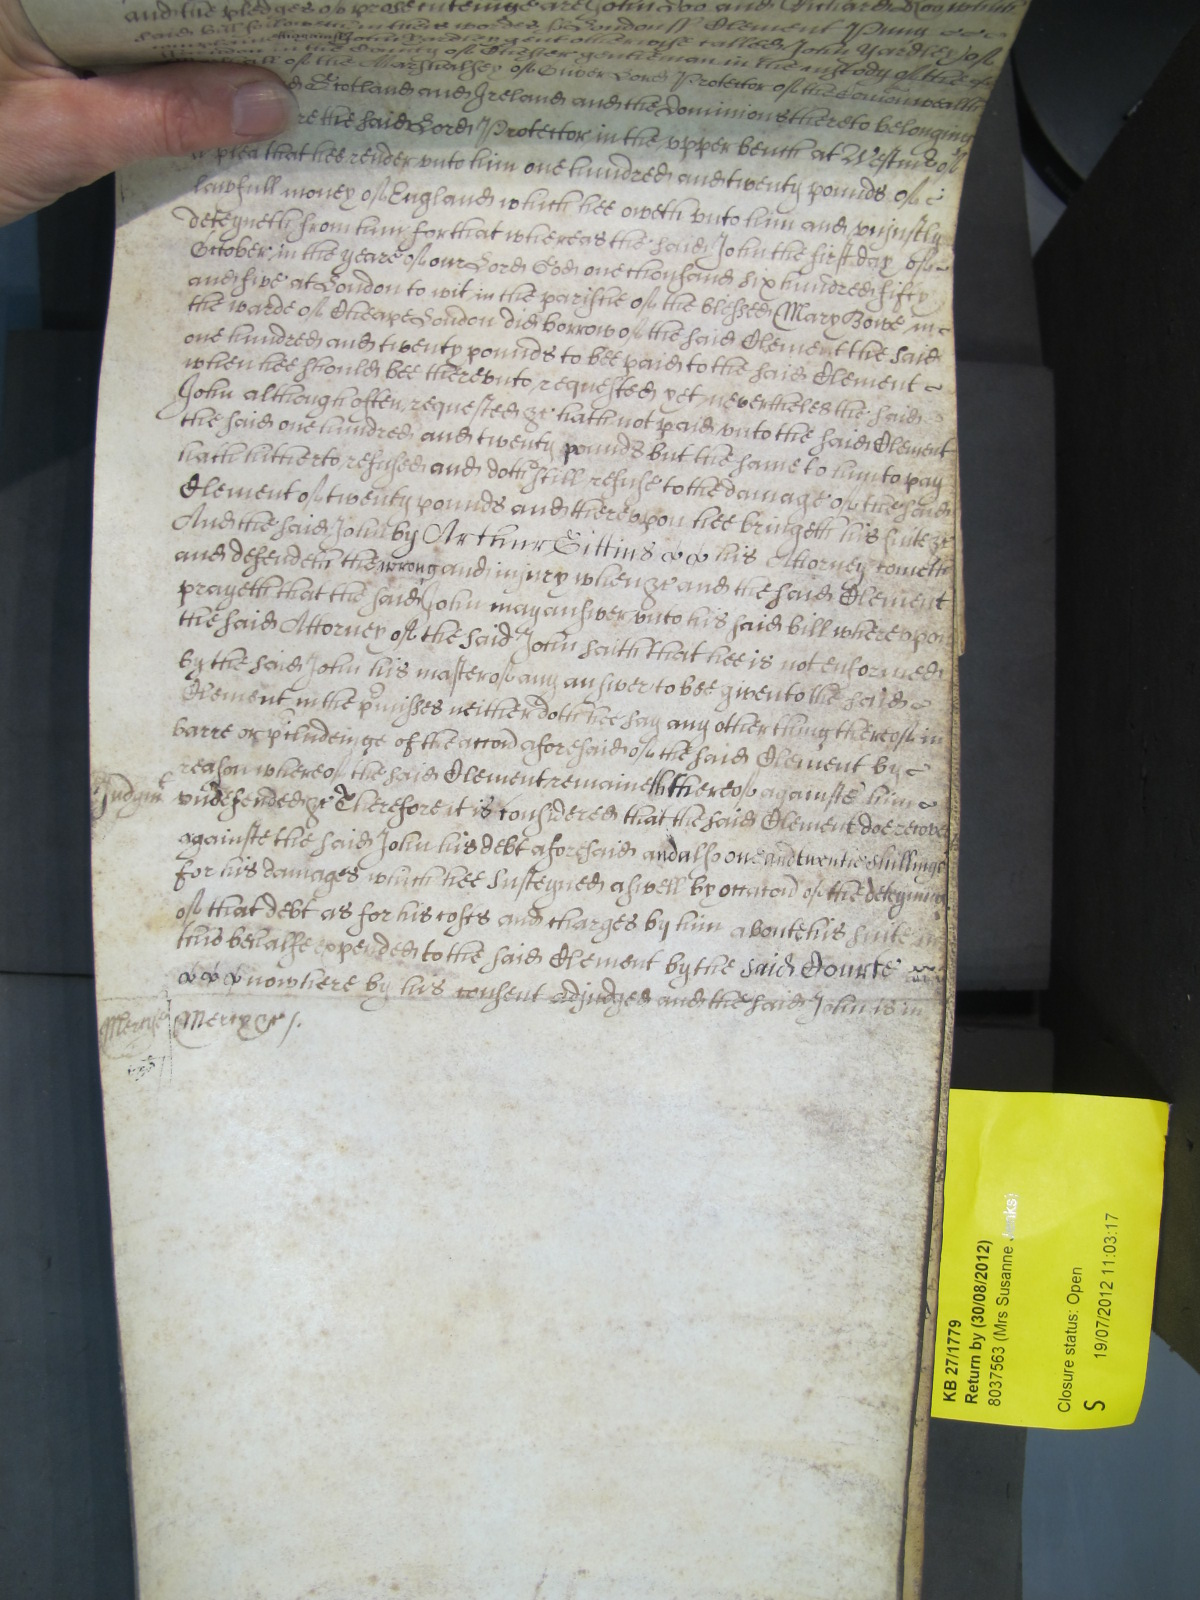 and the pledges of prosecuteinge are John Doo and Richard Roo which
said bill followeth in these wordes ss London ss Clement Pung
complaineth against John Yardley gent otherwise called John Yardley of
in the County of gentleman in the custody of the
Marshall of the Marshalsey of Oliver Lord Protector of the Comonwealth
Scotland and Ireland and the Dominions thereto belonging
re the said Lord Protector in the upper bench at Westm of
a plea that hee render vnto him one hundred and twenty pounds of
lawfull money of England which hee oweth vnto him and vnjustly
deteyneth from him for that whereas the said John the first day of
October in the yeare of our Lord God one thousand six hundred fifty
and five at London to wit in the parishe of the blessed Mary Bowe in
the warde of Cheape London did borrow of the said Clement the said
one hundred and twenty pounds to bee paid to the said Clement
when hee should bee therevnto requested yet nevertheles the said
John although often requested &c hath not paid vnto the said Clement
the said one hundred and twenty pounds but the same to him to pay
hath hitherto refused and doth still refuse to the damage of the said
Clement of twenty pounds and therevpon hee bringeth his suite &c
And the said John by Arthur Gittins his Attorney cometh
and defendeth the wrong and injury when &c and the said Clement
prayeth that the said John may answer vnto his said bill wherevpon
the said Attorney of the said John saith that hee is not enformed
by the said John his master of any answer to bee given to the said
Clement in the p'misses neither doth hee say any other thing thereof in
barre or p'cludeinge of the accon aforesaid of the said Clement by
reason whereof the said Clement remaineth thereof againste him
Judgmt
vndefended &c Therefore it is considered that the said Clement doe recover
againste the said John his debt aforesaid and also one and twentie shillings
for his damages which hee susteyned aswell by occacon of the deteyning
of that debt as for his costs and charges by him aboute his suite in
this behalfe expended to the said Clement by the said Courte
now here by his consent adjudged and the said John is in
Mercy
Mercy &c
KB 27/1779
Return by (30/08/2012)
8037563 (Mrs Susanne Jenks)
Closure status: Open
S 19/07/2012 11:03:17